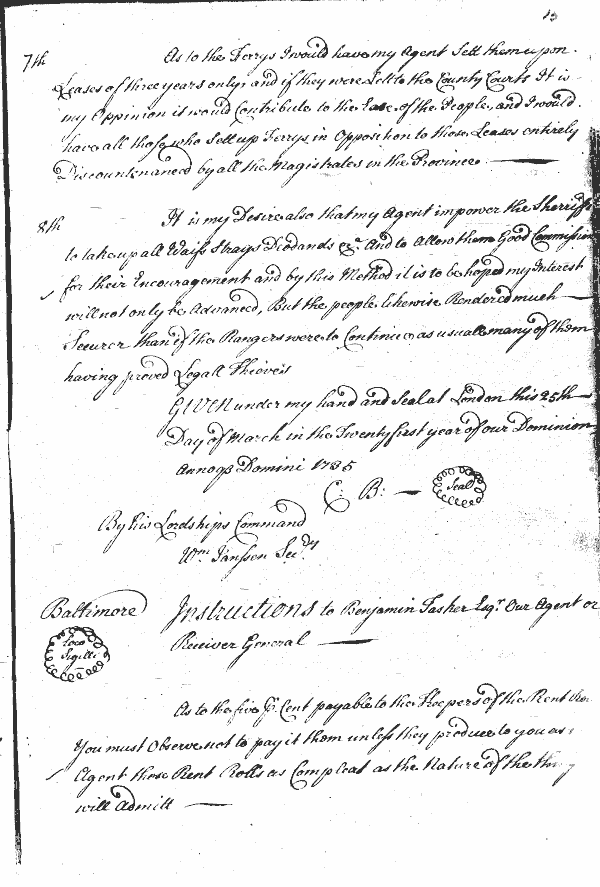 13
7th As to the Ferrys I would have my Agent Sett them upon
Leases of three years only, and if they were Lett to the County Courts It is
my Oppinion it would Contribute to the Ease of the People, and I would
have all those who Sett up Ferrys in Opposition to those Leases entirely
Discountenanced by all the Magistrates in the Province
8th It is my Desire also that my Agent impower the Sherriffs
to take up all Waifs Strays Deodands &c.a And to Allow them Good Commission
for their Encouragement and by this Method it is to be hoped my Interest
will not only be Advanced, But the people likewise Rendered much
Securer than if the Rangers were to Continue, as usual many of them
having proved Legall Thieves
GIVEN under my hand and Seal at London this 25th
Day of March in the Twenty first year of our Dominion
Annoqs Domini 1735
C: B: Seal
By his Lordships Command
Wm. Janssen Secry
Baltimore Instructions to Benjamin Tasher Esqr. Our Agent or
Loco Sigilli
Receiver General
As to the five P Cent payable to the Keepers of the Rent
You must Observe not to pay it them unless they produce to you as
Agent those Rent Rolls as Compleat as the Nature of the
will admitt